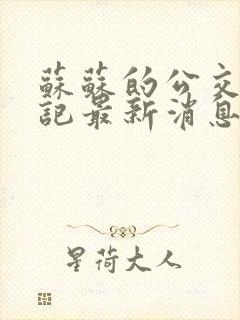 蘇蘇的公交
記最新消息
星荷大人